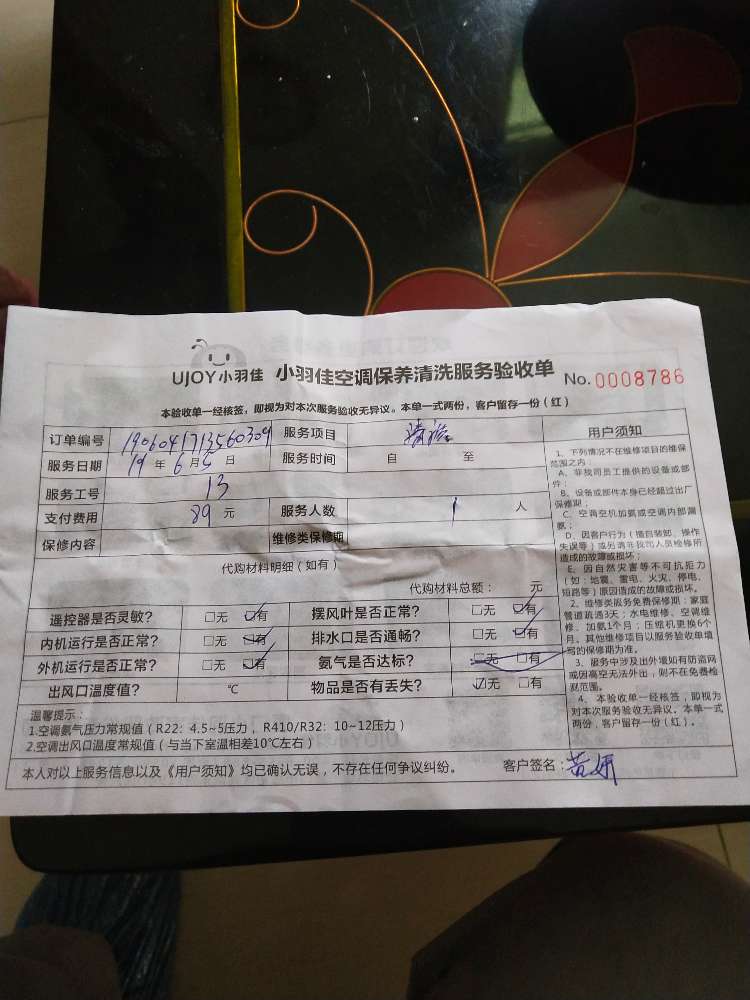 UJOY小羽佳 小羽佳空调保养清洗服务验收单 No.0008786
本验收单一经核签，即视为对本次服务验收无异议。本单一式两份，客户留存一份（红）
订单编号 1906041713560309 服务项目 清洗
服务日期 19 年 6 月 5 日 服务时间 自 至
服务工号 13
支付费用 89 元 服务人数 1 人
保修内容 维修类保修期
代购材料明细（如有）
代购材料总额： 元
遥控器是否灵敏？ □无 ☑有 摆风叶是否正常？ □无 ☑有
内机运行是否正常？ □无 ☑有 排水口是否通畅？ □无 ☑有
外机运行是否正常？ □无 ☑有 氨气是否达标？ □无 □有
出风口温度值？ ℃ 物品是否有丢失？ ☑无 □有
温馨提示：
1.空调氨气压力常规值（R22：4.5~5压力，R410/R32：10~12压力）
2.空调出风口温度常规值（与当下室温相差10℃左右）
本人对以上服务信息以及《用户须知》均已确认无误，不存在任何争议纠纷。 客户签名：黄妍
用户须知
1、下列情况不在维修项目的维保
范围之内：
A、非我司员工提供的设备或部
件；
B、设备或部件本身已经超过出厂
保修期；
C、空调空机加氨或空调内部漏
氨；
D、因客户行为（擅自装卸、操作
失误等）或另请非我司人员检修所
造成的故障或损坏；
E、因自然灾害等不可抗拒力
（如：地震、雷电、火灾、停电、
短路等）原因造成的故障或损坏。
2、维修类服务免费保修期：家庭
管道疏通3天；水电维修、空调维
修、加氨1个月；压缩机更换6个
月。其他维修项目以服务验收单填
写的保修期为准。
3、服务中涉及出外墙如有防盗网
或因高空无法外出，则不在免费检
测范围。
4、本验收单一经核签，即视为
对本次服务验收无异议。本单一式
两份，客户留存一份（红）。